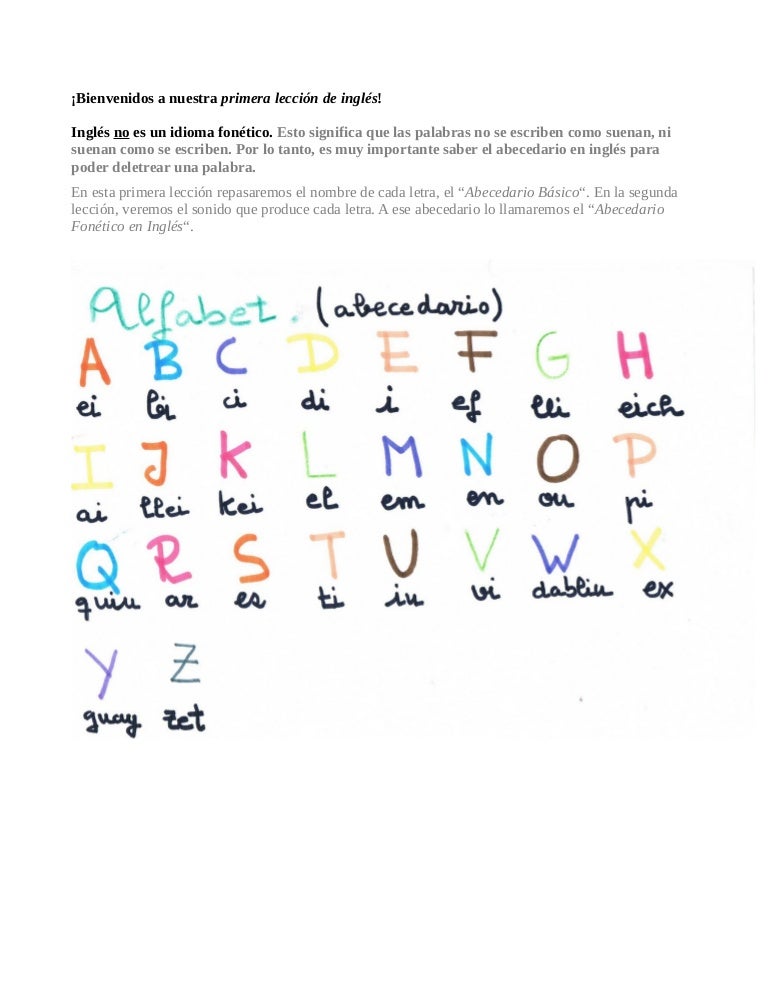 ¡Bienvenidos a nuestra primera lección de inglés!
Inglés no es un idioma fonético. Esto significa que las palabras no se escriben como suenan, ni
suenan como se escriben. Por lo tanto, es muy importante saber el abecedario en inglés para
poder deletrear una palabra.
En esta primera lección repasaremos el nombre de cada letra, el “Abecedario Básico“. En la segunda
lección, veremos el sonido que produce cada letra. A ese abecedario lo llamaremos el “Abecedario
Fonético en Inglés“.
Alfabet. (abecedario)
A B C D E F G H
ei bi ci di i ef lli eich
I J K L M N O P
ai llei kei el em en ou pi
Q R S T U V W X
quiu ar es ti iu vi dabliu ex
Y Z
guay zet